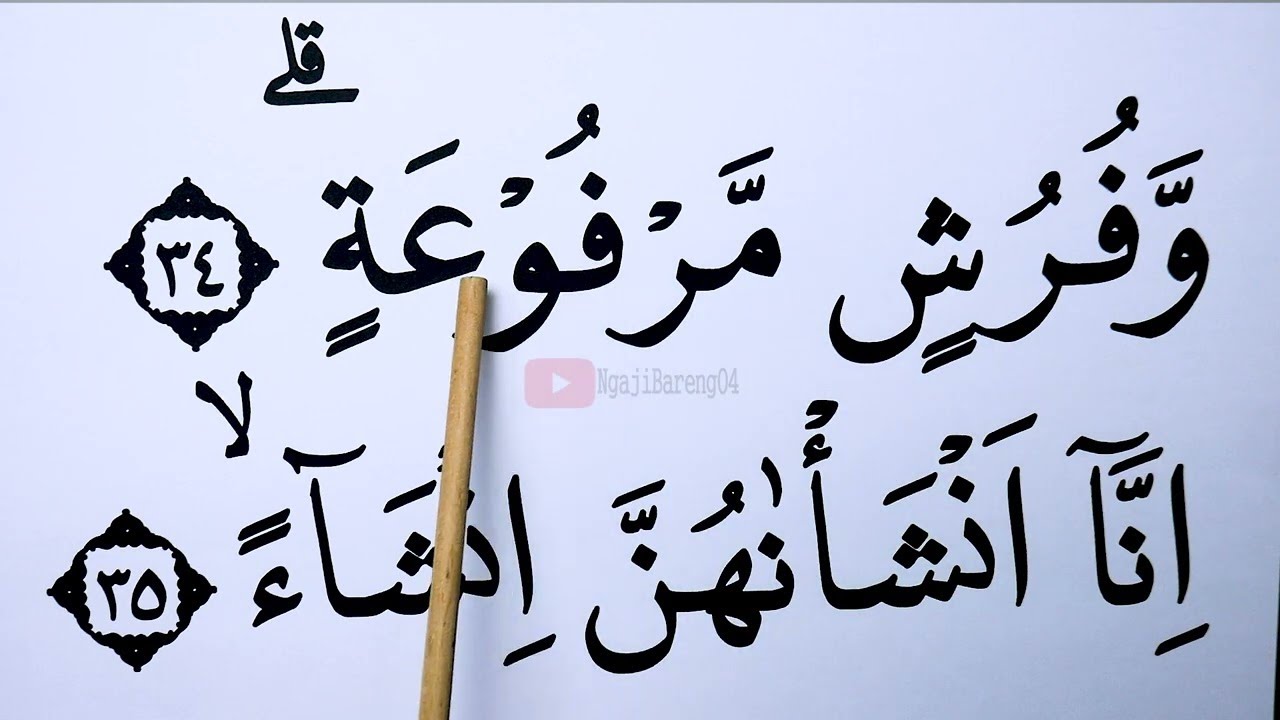 قلے
وَّفُرُشٍ مَّرْفُوْعَةٍ ٣٤
لا
اِنَّآ اَنْشَأْنٰهُنَّ اِنْشَآءً ٣٥
NgajiBareng04